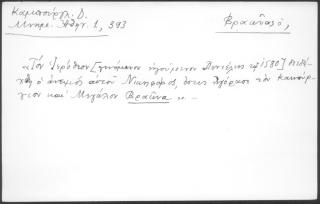 Καμπούρογλ. Δ.
Μνημ. Ἀθην. 1, 393
Βραῶνας,
«Τὸν Ἱερόθεον [γενόμενον ἡγούμενον Πεντέλης τῷ 1580]
ὁ ἀνεψιὸς αὐτοῦ Νικηφόρος, ὅστις ἠγόρασε τὸν καινούρ-
γιον καὶ Μεγάλον Βραῶνα „ –